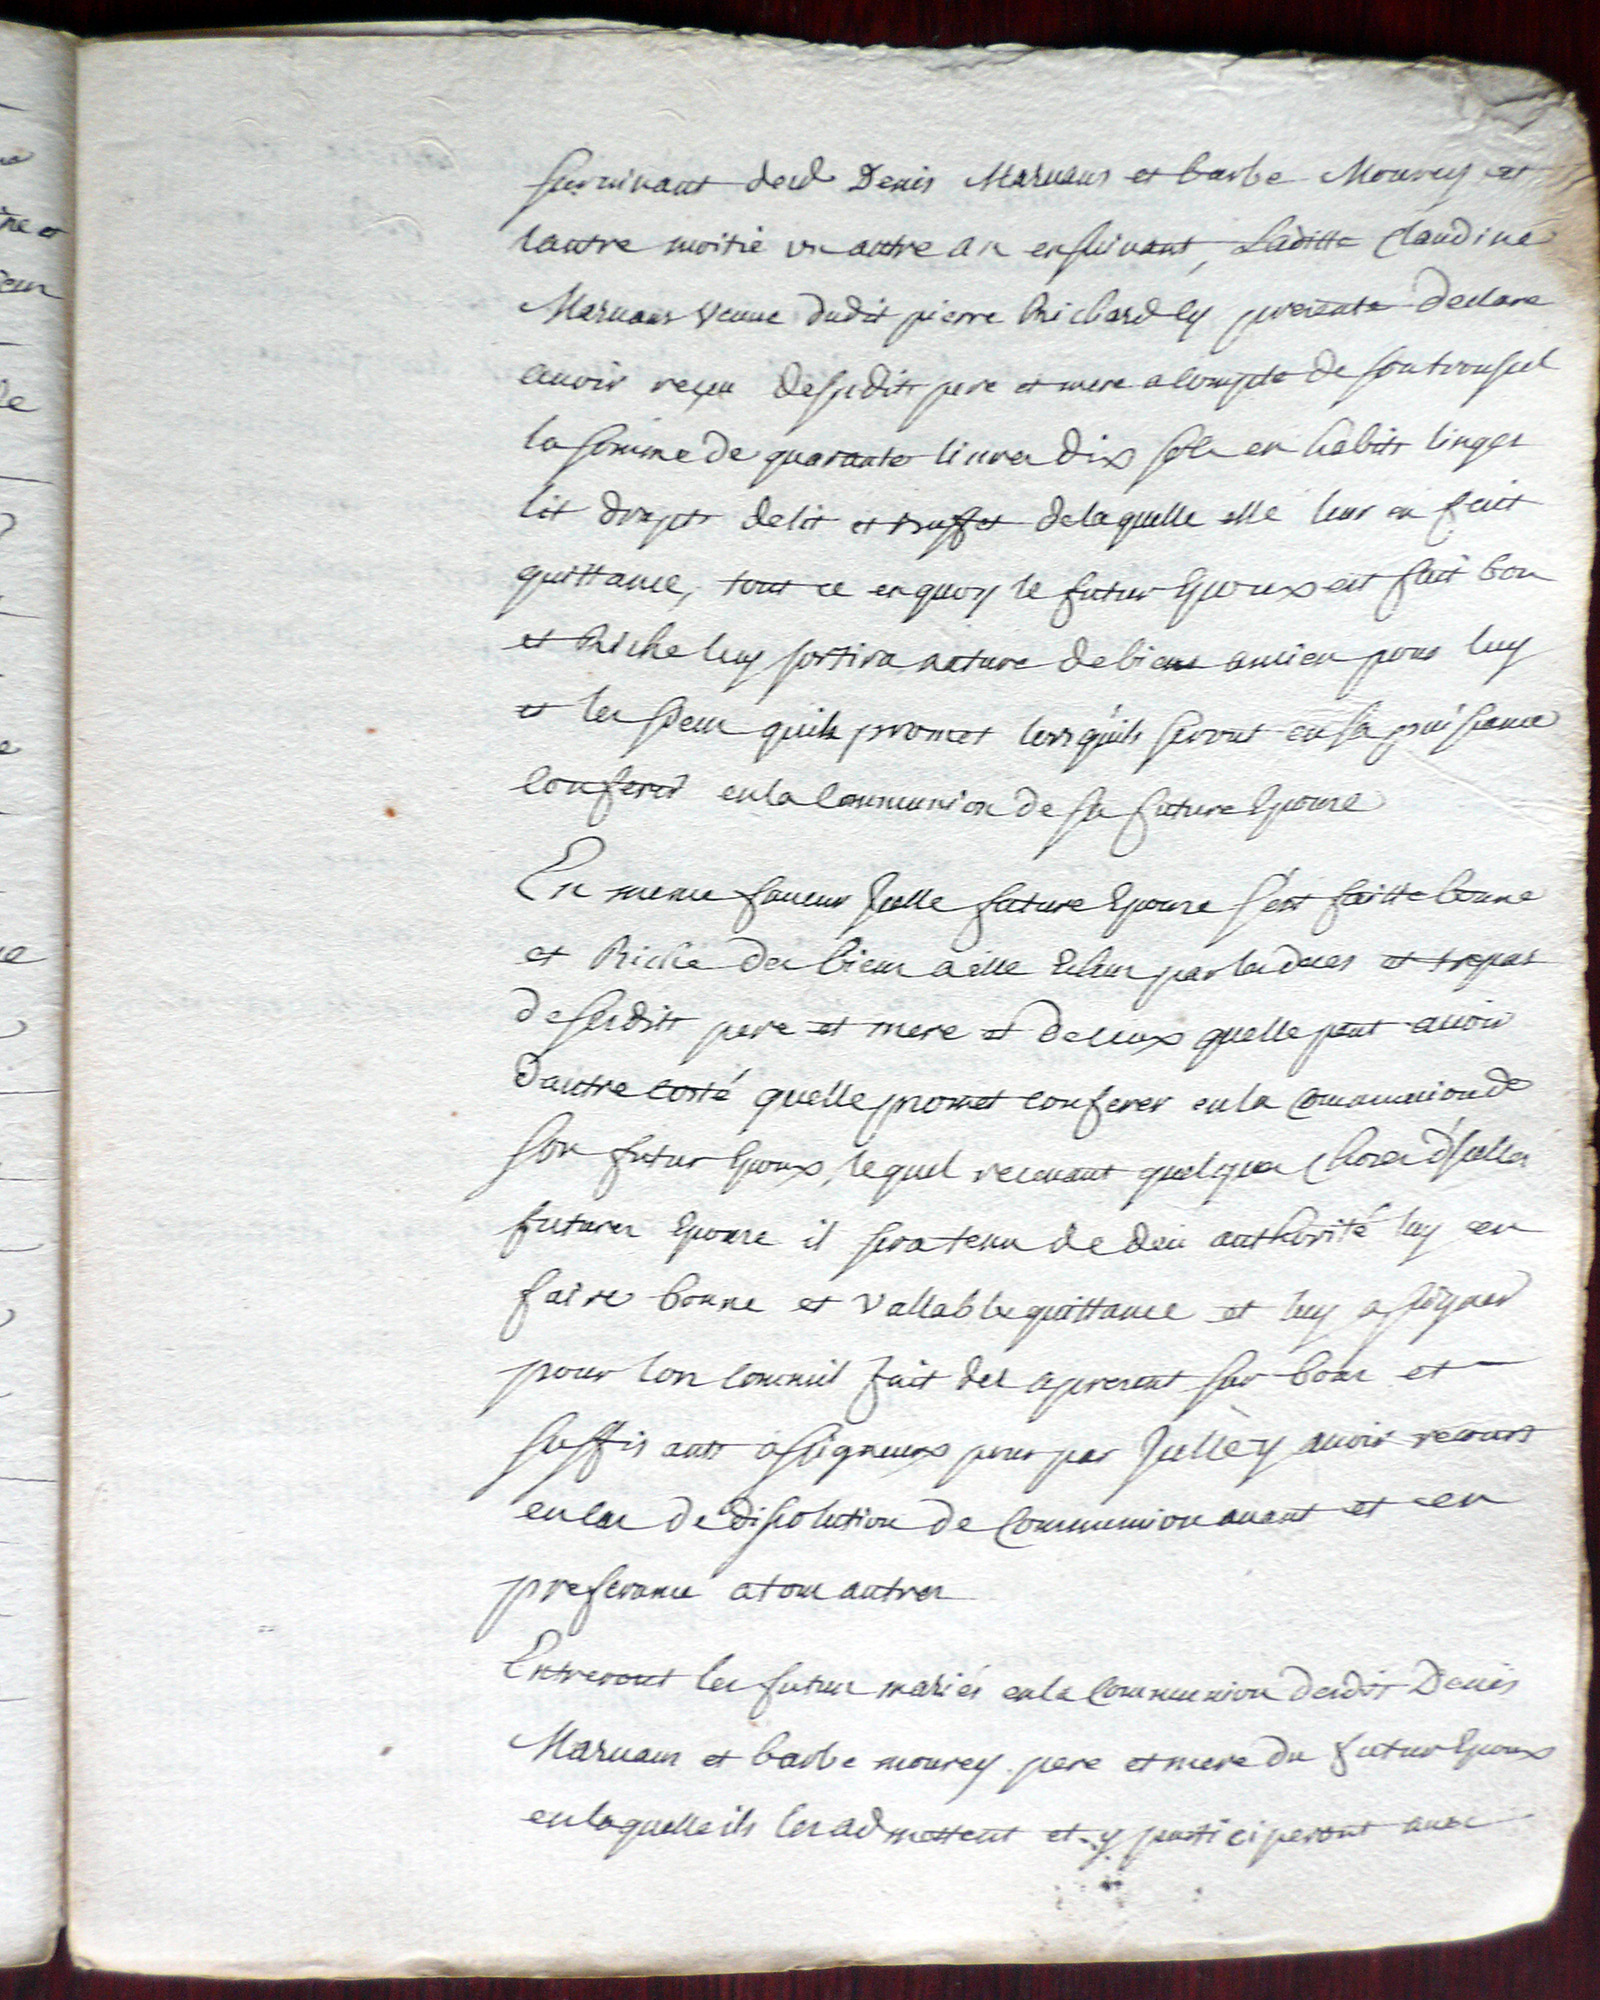 survivant desd Denis Maruans et barbe Mourey et
lautre moitié un autre an ensuivant, Laditte Claudine
Maruans veuve dudit pierre Richardey presente declare
auoir reçeu desesdits pere et mere a compte de son trousel
la somme de quarante liures dix sols en habits linges
lit drapts de lit et buffet de laquelle elle leur en fait
quittance, tout ce enquoy le futur Epoux est fait bon
et Riche luy sortira nature de biens ancien pour luy
et les siens quils promet lors quils seront en sa puissance
conferer en la Communion de sa future Epouse
En meme faueur Jcelle future Epouse s'est faitte bonne
et Riche des biens a elle Echus par les deces et trepas
de sesdits pere et mere et de ceux quelle peut auoir
d'autre costé quelle promet conferer en la Communion de
son futur Epoux, lequel receuant quelques choses d'Jcelles
futures Epouse il sera tenu de deüe authorité luy en
faire bonne et vallable quittance et luy assigner
pour lors comme il fait des apresent sur bons et
suffis ants assignaux pour par Jcelle y auoir recours
en cas de dissolution de Communion auant et en
preferance a tous autres
Entreront les futurs mariés en la Communion desdits Denis
Maruans et barbe mourey pere et mere du futur Epoux
en laquelle ils les admettent et y participeront auec